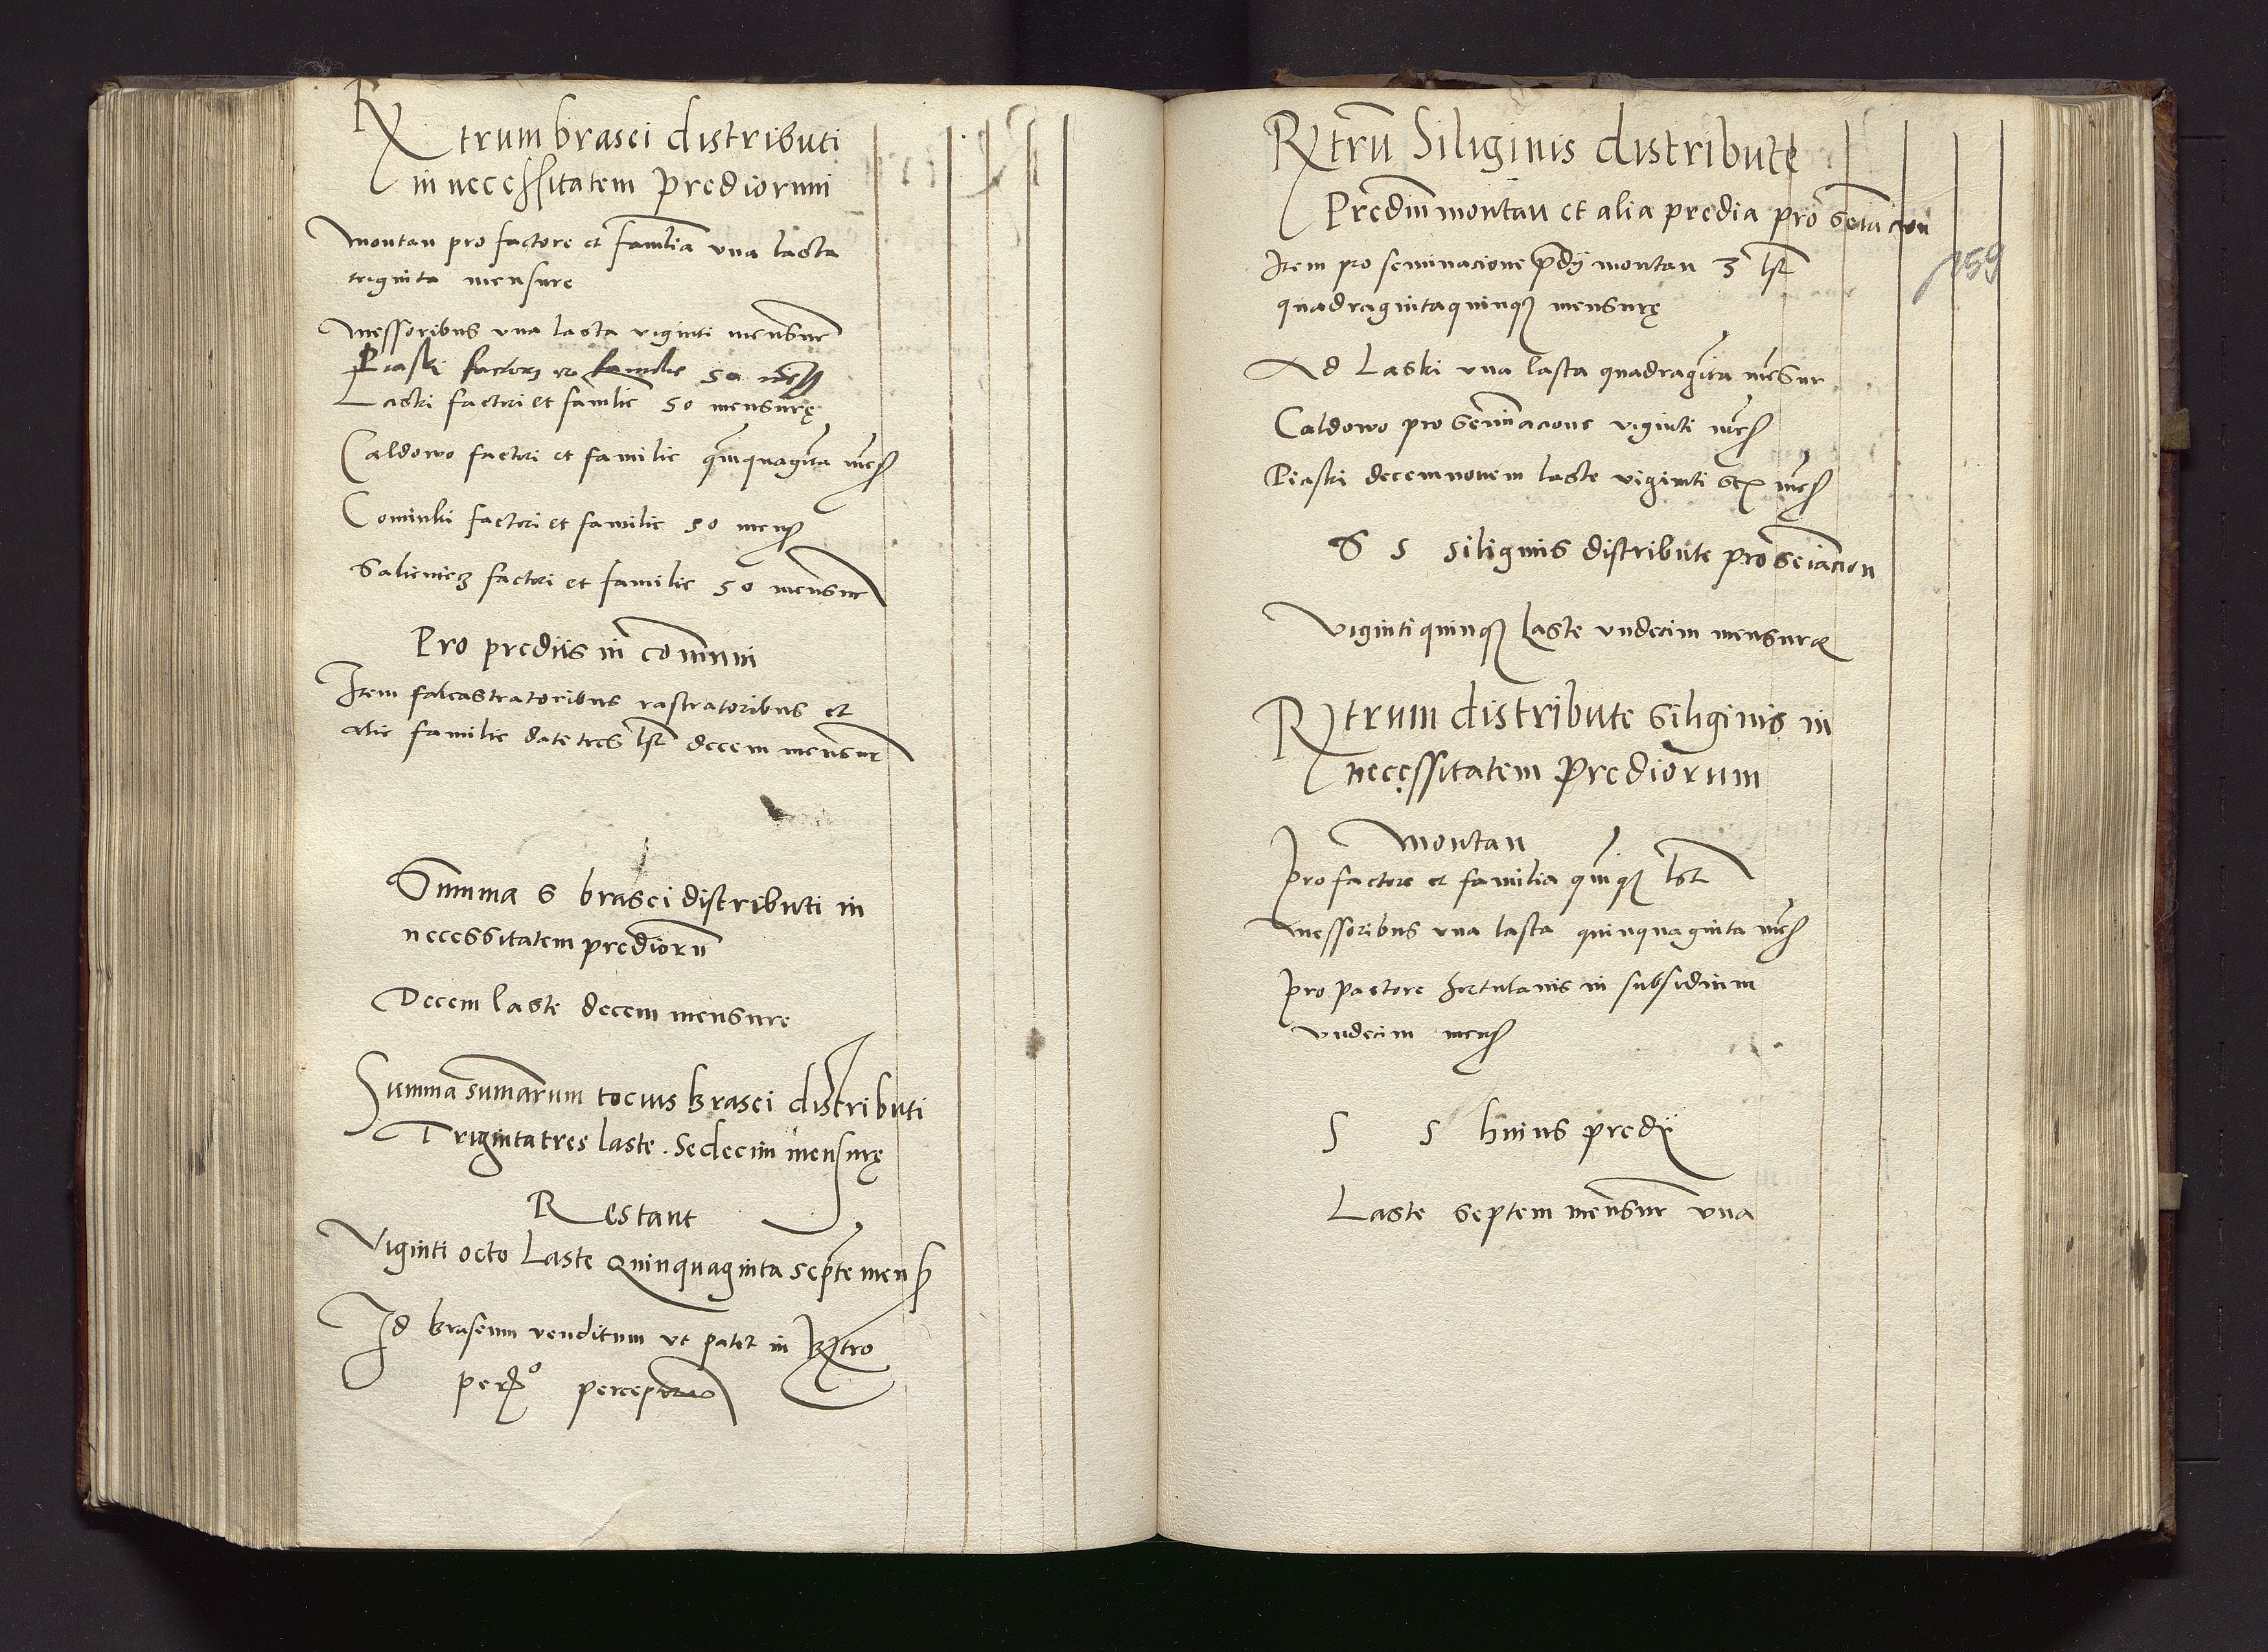 Rx trum brasei distributi
in necessitatem prediorum
Montau pro factore et familia una lasta
triginta mensure
Messoribus una lasta viginti mensur
Piaski factori et familie 50 mens
Laski factori et familie 50 mensurę
Caldowo factori et familie quinquaginta mens
Cominki factori et familie 50 mens
factori et familie 50 mensur
Pro prediis in communi
Item falcastratoribus rastratoribus et
alie familie date tres lst decem mensur
Summa s brasei distributi in
necessitatem prediorū
Decem laste decem mensure
Summa sumarum tocius brasei distributi
Trigintatres laste . Sedecim mensurę
Restant
Viginti octo Laste Quinquaginta septē mens
Id braseum venditum ut patet in Rxtro
Rxtrū Siliginis distribute
Prediū montau et alia predia pro seiacion
Item pro seminacione pdij montau 3 lst
quadragintaquinqꝫ mensurę
Ad Laski una lasta quadraginta mensur
Caldowo pro seminacione viginti mens
Piaski decemnovem laste viginti sex mens
S s siliginis distribute pro seiacion
Vigintiquinqꝫ laste undecim mensuræ
Rxtrum distribute siliginis in
necęssitatem Prediorum
Montau
Pro factore et familia quinqꝫ lst
Messoribus una lasta quinquaginta mens
Pro pastore hortulanis in subsidium
undecim mens
S s huius predij
Laste septem mensur una
159